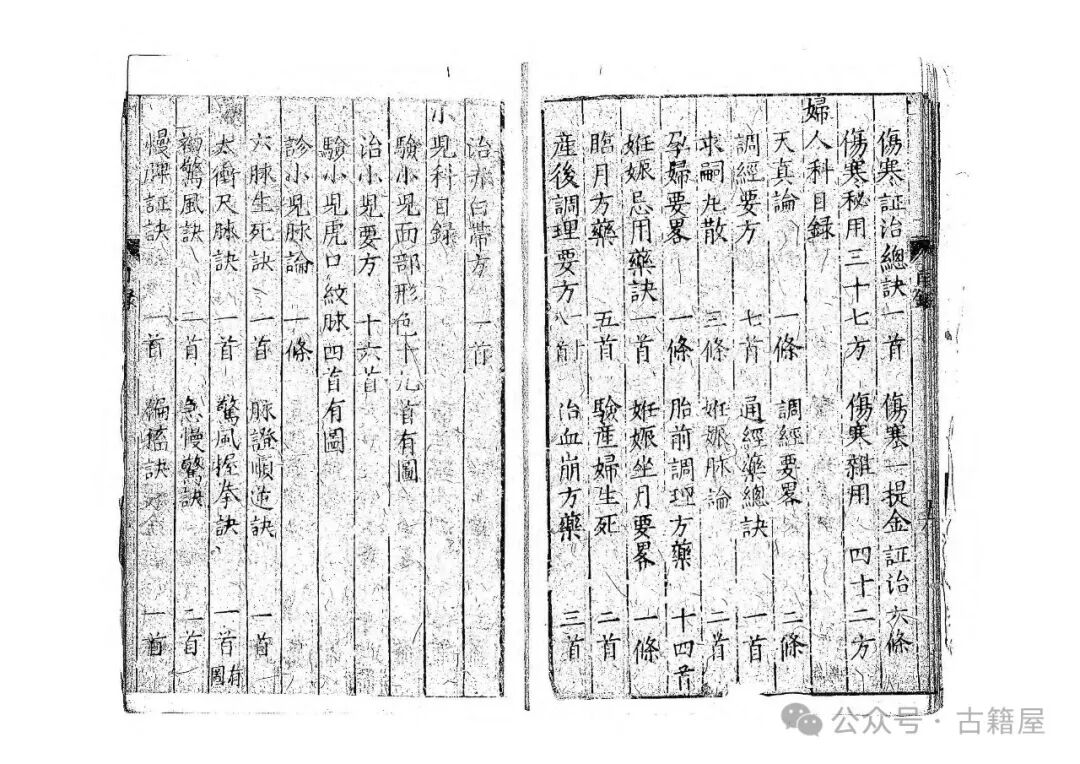 傷寒証治總訣一首 傷寒一提金証治六條
傷寒秘用三十七方 傷寒雜用 四十二方
婦人科目録
天真論 一條 調經要畧 二條
調經要方 七首 通經藥總訣 一首
求嗣丸散 三條 妊娠脉論 二首
孕婦要畧 一條 胎前調理方藥 十四首
妊娠忌用藥訣 一首 妊娠坐月要畧 一條
臨月方藥 五首 驗産婦生死 二首
産後調理要方 八首 治血崩方藥 三首
目録
治赤白帶方 一首
小児科目録
驗小児面部形色十九首有圖
治小児要方 十六首
驗小児虎口紋脉四首有圖
診小児脉論 一條
六脉生死訣 一首 脉證順逆訣 一首
太衝尺脉訣 一首 驚風握拳訣 一首有圖
驚風訣 二首 急慢驚訣 二首
慢脾証訣 一首 訣 一首
録
公众号 · 古籍屋